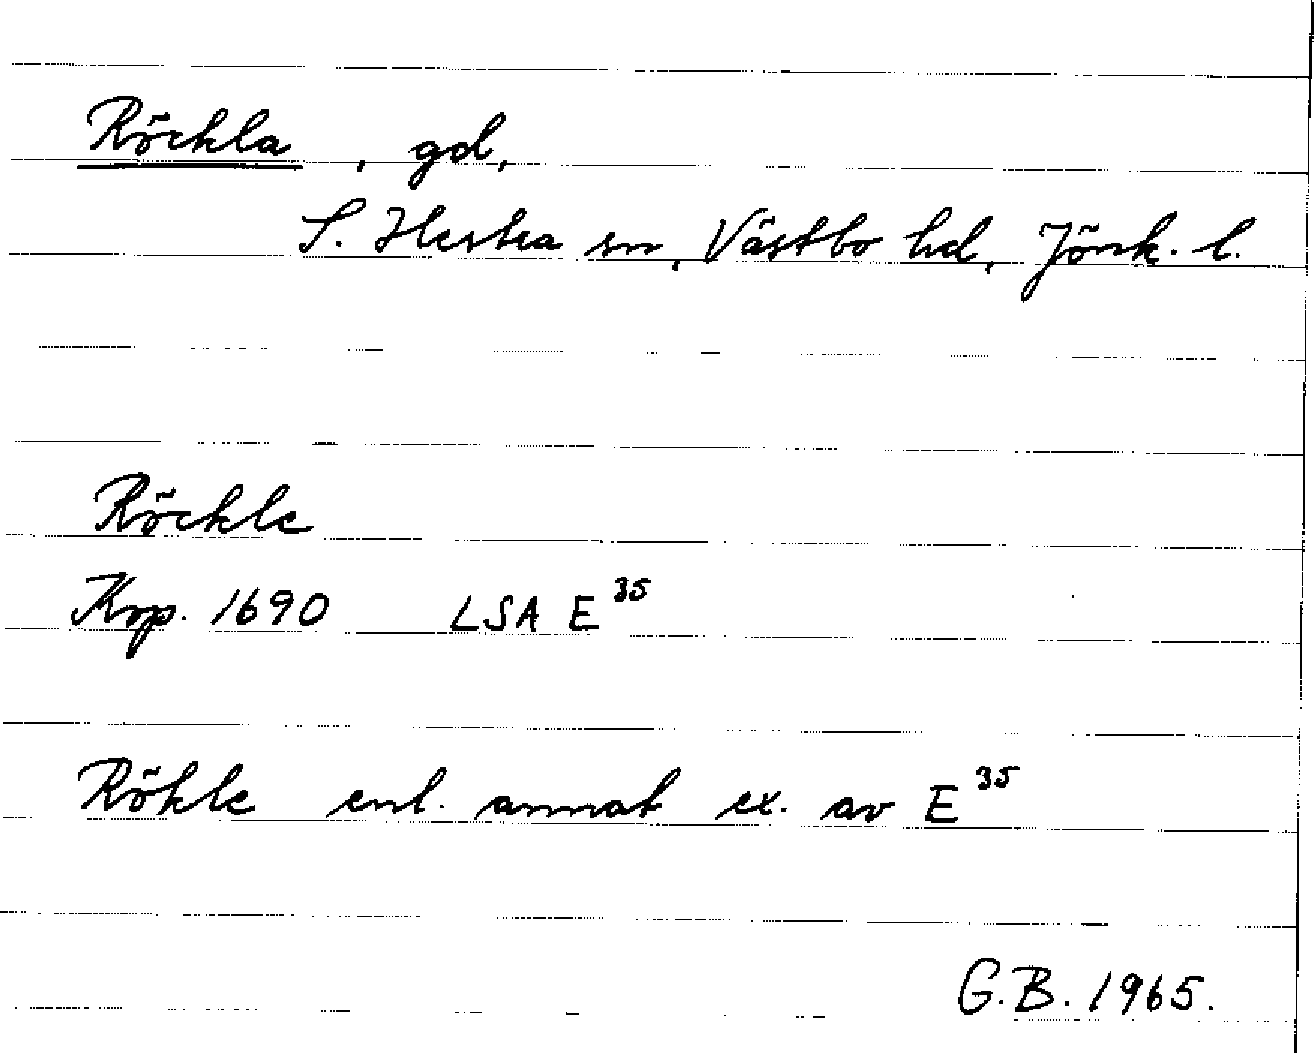 Röckla, gd,
S. Hestra sn, Västbo hd, Jönk. l.
Röckle
Krp. 1690 LSA E 35
Rökle enl. annat ex. av E 35
G.B. 1965.